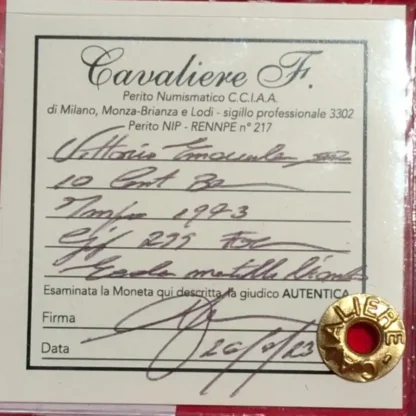 Cavaliere F.
Perito Numismatico C.C.I.A.A.
di Milano, Monza-Brianza e Lodi - sigillo professionale 3302
Perito NIP - RENNPE n° 217
Vittorio Emanuele
10 Cent
1943
Gig 299
Esaminata la Moneta qui descritta, la giudico AUTENTICA
Firma
Data
CAVALIERE